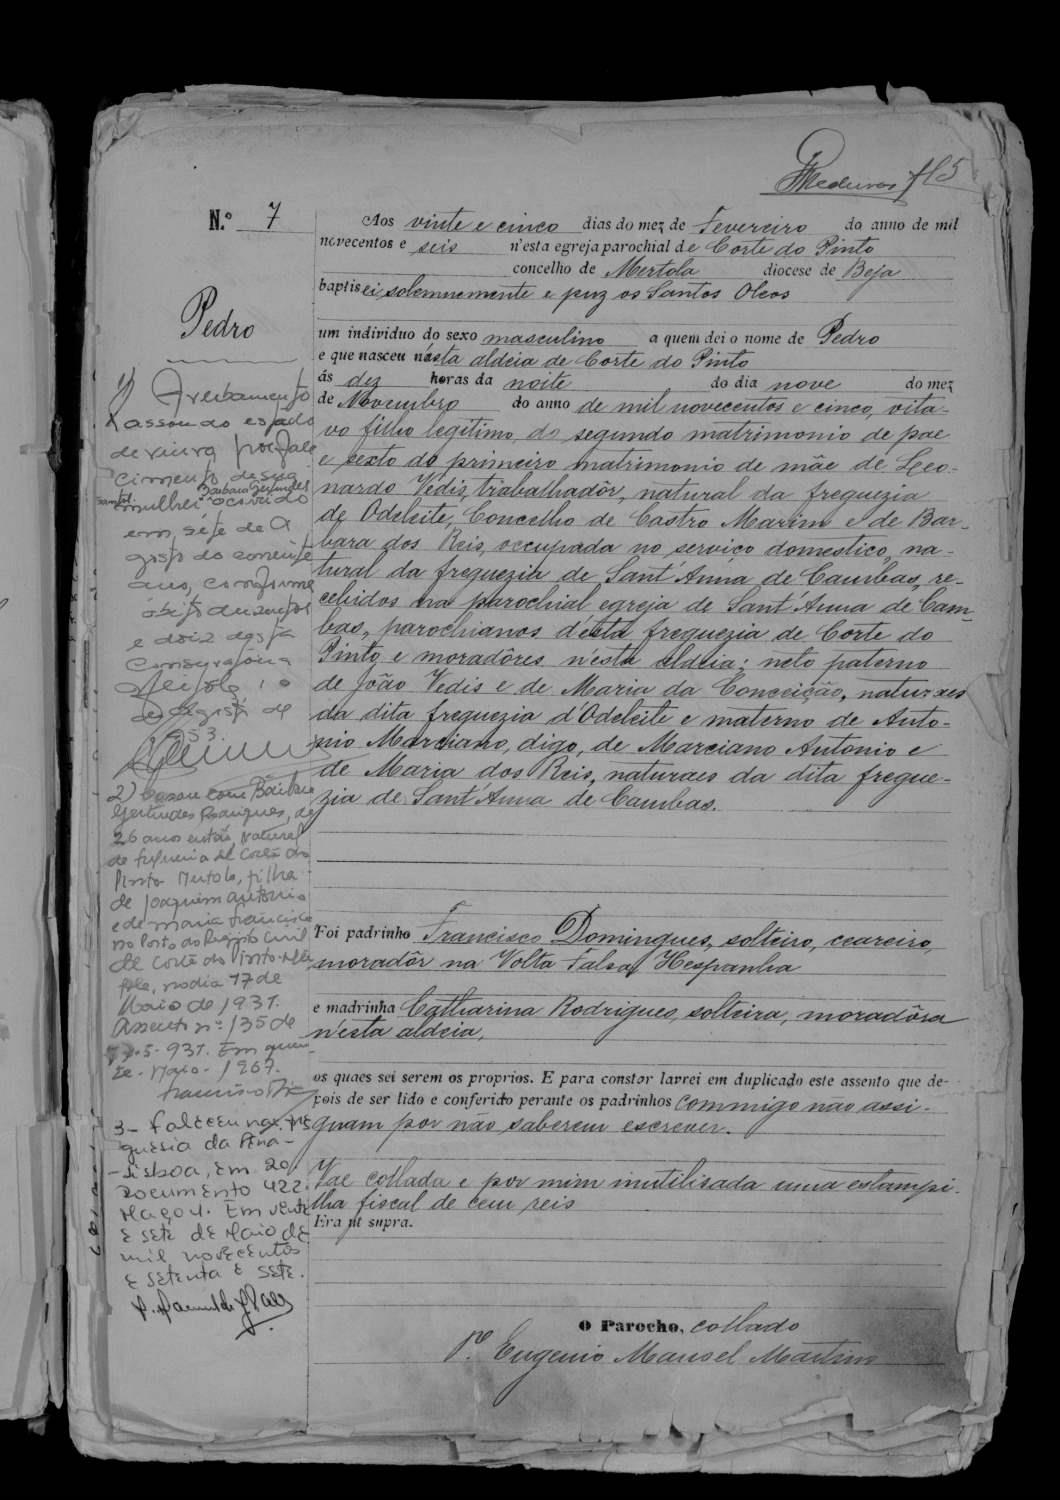 fl 5
N.º 7
Pedro
Aos vinte e cinco dias do mez de Fevereiro do anno de mil
novecentos e seis n'esta egreja parochial de Corte do Pinto
concelho de Mertola diocese de Beja
baptisei solemnemente e puz os Santos Oleos
um individuo do sexo masculino a quem dei o nome de Pedro
e que nasceu nésta aldeia de Corte do Pinto
ás dez horas da noite do dia nove do mez
de Novembro do anno de mil novecentos e cinco, oita-
vo filho legitimo, do segundo matrimonio de pae
e sexto do primeiro matrimonio de mãe de Leo-
nardo Vedis, trabalhadôr, natural da freguezia
de Odeleite, Concelho de Castro Marim e de Bar-
bara dos Reis, occupada no serviço domestico, na-
tural da freguezia de Sant'Anna de Cambas, re-
cebidos na parochial egreja de Sant'Anna de Cam-
bas, parochianos d'ésta freguezia de Corte do
Pinto e moradôres n'esta aldeia; neto paterno
de João Vedis e de Maria da Conceição, naturaes
da dita freguezia d'Odeleite e materno de Anto-
nio Marciano, digo, de Marciano Antonio e
de Maria dos Reis, naturaes da dita fregue-
zia de Sant'Anna de Cambas.
Foi padrinho Francisco Domingues, solteiro, ceareiro,
moradôr na Volta Falsa, Hespanha
e madrinha Catharina Rodrigues, solteira, moradôra
n'esta aldeia,
os quaes sei serem os proprios. E para constar lavrei em duplicado este assento que de-
pois de ser lido e conferido perante os padrinhos commigo não assi-
gnam por não saberem escrever.
Vae collada e por mim inutilisada uma estampi-
lha fiscal de cem reis
Era ut supra.
O Parocho, collado
P.e Eugenio Manoel Martins
1) Averbamento
Passou ao estado
de viuvo por fale
cimento de sua
mulher Barbara Gertrudes ocorrido
em sete de A
gosto do corrente
ano, conforme
óbito duzentos
e dois desta
Conservatória
de Agosto de
953.
2) Casou com Bárbara
Gertrudes Rodrigues, de
26 anos então, natural
da freguesia de Corte do
Pinto Mertola, filha
de Joaquim António
e de Maria Francisca
no Posto do Registo Civil
de Corte do Pinto-Mér
tola, no dia 17 de
Maio de 1931.
Assento nº 135 de
5-931. Em quin-
ze-Maio-1967.
3- Faleceu na fre
guesia da Pena-
-Lisboa, em 20
Documento 422
Maço 1. Em vinte
e sete de Maio de
mil novecentos
e setenta e sete.